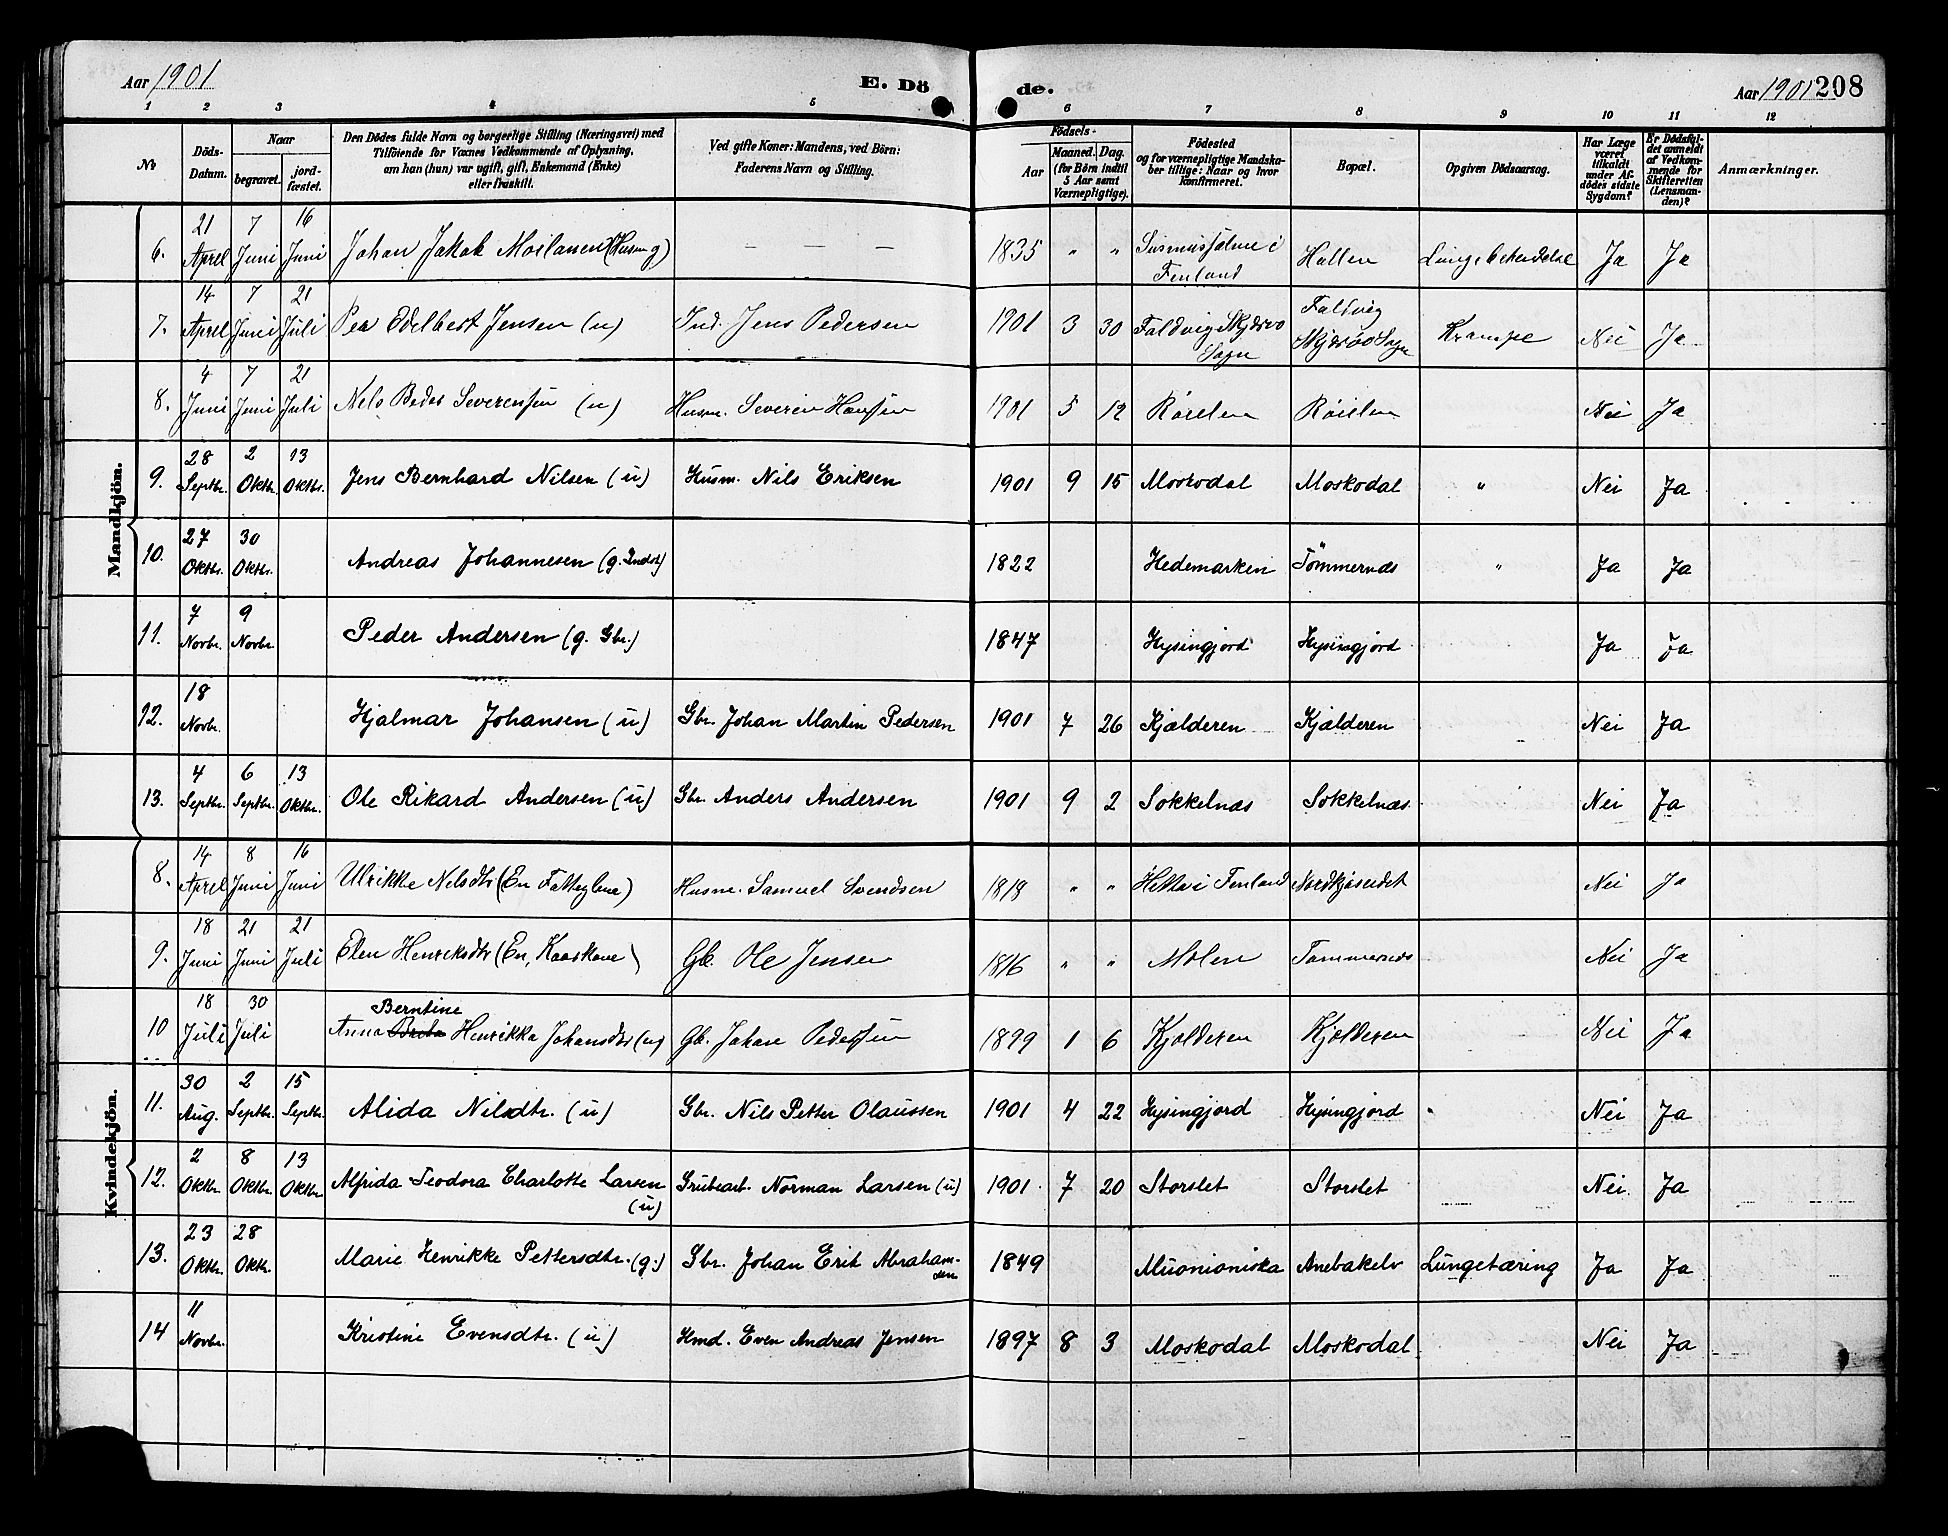 Aar 1901
E. Dö de.
Aar 1901 208
1 2 3 4 5 6 7 8 9 10 11 12
No
Döds-Datum.
Naar
begravet.
jord-fæstet.
Den Dödes fulde Navn og borgerlige Stilling (Næringsvei) med
Tilföiende for Voxnes Vedkommende af Oplysning,
om han (hun) var ugift, gift, Enkemand (Enke)
eller fraskilt.
Ved gifte Koner: Mandens, ved Börn:
Faderens Navn og Stilling.
Födsels-
Aar
Maaned. Dag.
(for Börn indtil
5 Aar samt
Værnepligtige).
Födested
og for værnepligtige Mandska-
ber tillige: Naar og hvor
konfirmeret.
Bopæl.
Opgiven Dödsaarsag.
Har Læge
været
tilkaldt
under Af-
dödes sidste
Sygdom?
Er Dödsfal-
det anmeldt
af Vedkom-
mende for
Skifteretten
(Lensman-
den)?
Anmærkninger.
Mandkjön.
6. 21 April 7 Juni 16 Juni Johan Jakob Moilanen (Husm g) — — — 1835 " " i Finland Hallen Ja Ja
7. 14 April 7 Juni 21 Juli Per Edelbert Jensen (u) Ind. Jens Pedersen 1901 3 30 Faldvig Skjærvø Sogn Faldvig Skjærvø Sogn Krampe Nei Ja
8. 4 Juni 7 Juni 21 Juli Nils Peder Severinsen (u) Husm. Severin Hansen 1901 5 12 Røielen Røielen Nei Ja
9. 28 Septbr. 2 Oktbr. 13 Oktbr. Jens Bernhard Nilsen (u) Husm. Nils Eriksen 1901 9 15 Moskodal Moskodal " Nei Ja
10. 27 Oktbr. 30 Oktbr. Andreas Johannesen (g. Indst) 1822 Hedemarken Tømmernæs " Ja Ja
11. 7 Novbr. 9 Novbr. Peder Andersen (g. Gbr.) 1847 Hysingjord Hysingjord Ja Ja
12. 18 Novbr. Hjalmar Johansen (u) Gbr. Johan Martin Pedersen 1901 7 26 Kjælderen Kjælderen Nei Ja
13. 4 Septbr. 6 Septbr. 13 Oktbr. Ole Rikard Andersen (u) Gbr. Anders Andersen 1901 9 2 Sokkelnæs Sokkelnæs Nei Ja
Kvindekjön.
8. 14 April 8 Juni 16 Juni Ulrikke Nilsdtr (En Fattiglem) Husm. Samuel Svendsen 1818 " " Hetta i Finland Nordkjoseidet Nei Ja
9. 18 Juni 21 Juni 21 Juli Elen Henriksdtr (En, Kaarkone) Gb. Ole Jensen 1816 " " Molen Tømmernæs Nei Ja
10 18 Juli 30 Juli Anna Berntine Henrikka Johansdtr (u) Gb. Johan Pedersen 1899 1 6 Kjælderen Kjælderen Nei Ja
11. 30 Aug. 2 Septbr. 15 Septbr. Alida Nilsdtr. (u) Gbr. Nils Petter Olaussen 1901 4 22 Hysingjord Hysingjord " Nei Ja
12. 2 Oktbr. 8 Oktbr. 13 Oktbr. Alfrida Teodora Charlotte Larsen (u) Grubearb. Norman Larsen (u) 1901 7 20 Storslet Storslet Nei Ja
13. 23 Oktbr. 28 Oktbr. Marie Henrikke Pettersdtr. (g.) Gbr. Johan Erik Abraham-sen 1849 Muonioniska Anebakelv Lungetæring Ja Ja
14 11 Novbr. Kristine Evensdtr. (u) Hmd. Even Andreas Jensen 1897 8 3 Moskodal Moskodal Nei Ja